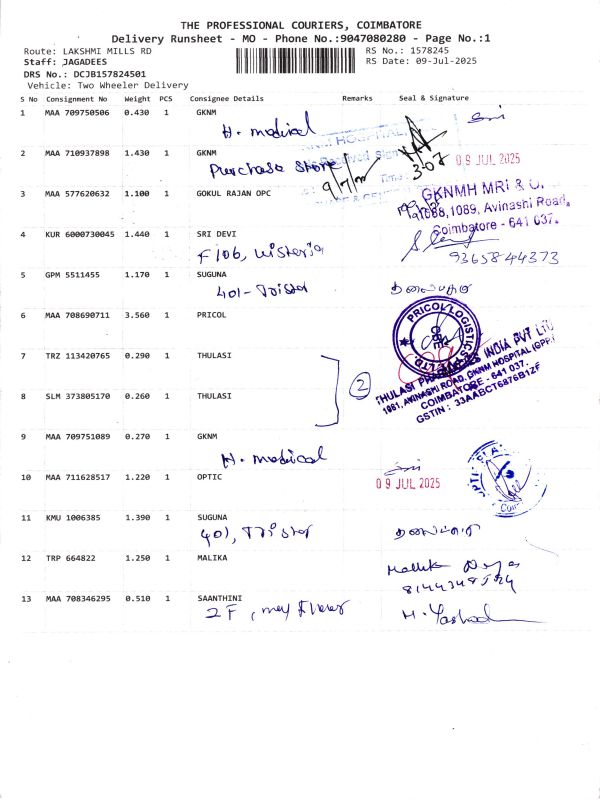 THE PROFESSIONAL COURIERS, COIMBATORE
Delivery Runsheet - MO - Phone No.:9047080280 - Page No.:1
Route: LAKSHMI MILLS RD
RS No.: 1578245
Staff: JAGADEES
RS Date: 09-Jul-2025
DRS No.: DCJB157824501
Vehicle: Two Wheeler Delivery
S No Consignment No Weight PCS Consignee Details Remarks Seal & Signature
1 MAA 709750506 0.430 1 GKNM
H. medical
2 MAA 710937898 1.430 1 GKNM
Purchase Store
3-07
09 JUL 2025
3 MAA 577620632 1.100 1 GOKUL RAJAN OPC
GKNMH MRI &
1088,1089, Avinashi Road,
Coimbatore - 641 037.
4 KUR 6000730045 1.440 1 SRI DEVI
F106, Wisteria
9365844373
5 GPM 5511455 1.170 1 SUGUNA
401-
6 MAA 708690711 3.560 1 PRICOL
PRICOL LOGISTICS
7 TRZ 113420765 0.290 1 THULASI
2
THULASI PHARMACIES INDIA PVT LTD
1081, AVINASHI ROAD, GKNM HOSPITAL (GPP)
COIMBATORE - 641 037.
GSTIN : 33AABCT6876B1ZF
8 SLM 373805170 0.260 1 THULASI
9 MAA 709751089 0.270 1 GKNM
H. medical
10 MAA 711628517 1.220 1 OPTIC
09 JUL 2025
11 KMU 1006385 1.390 1 SUGUNA
401,
12 TRP 664822 1.250 1 MALIKA
13 MAA 708346295 0.510 1 SAANTHINI
2F, may Flower